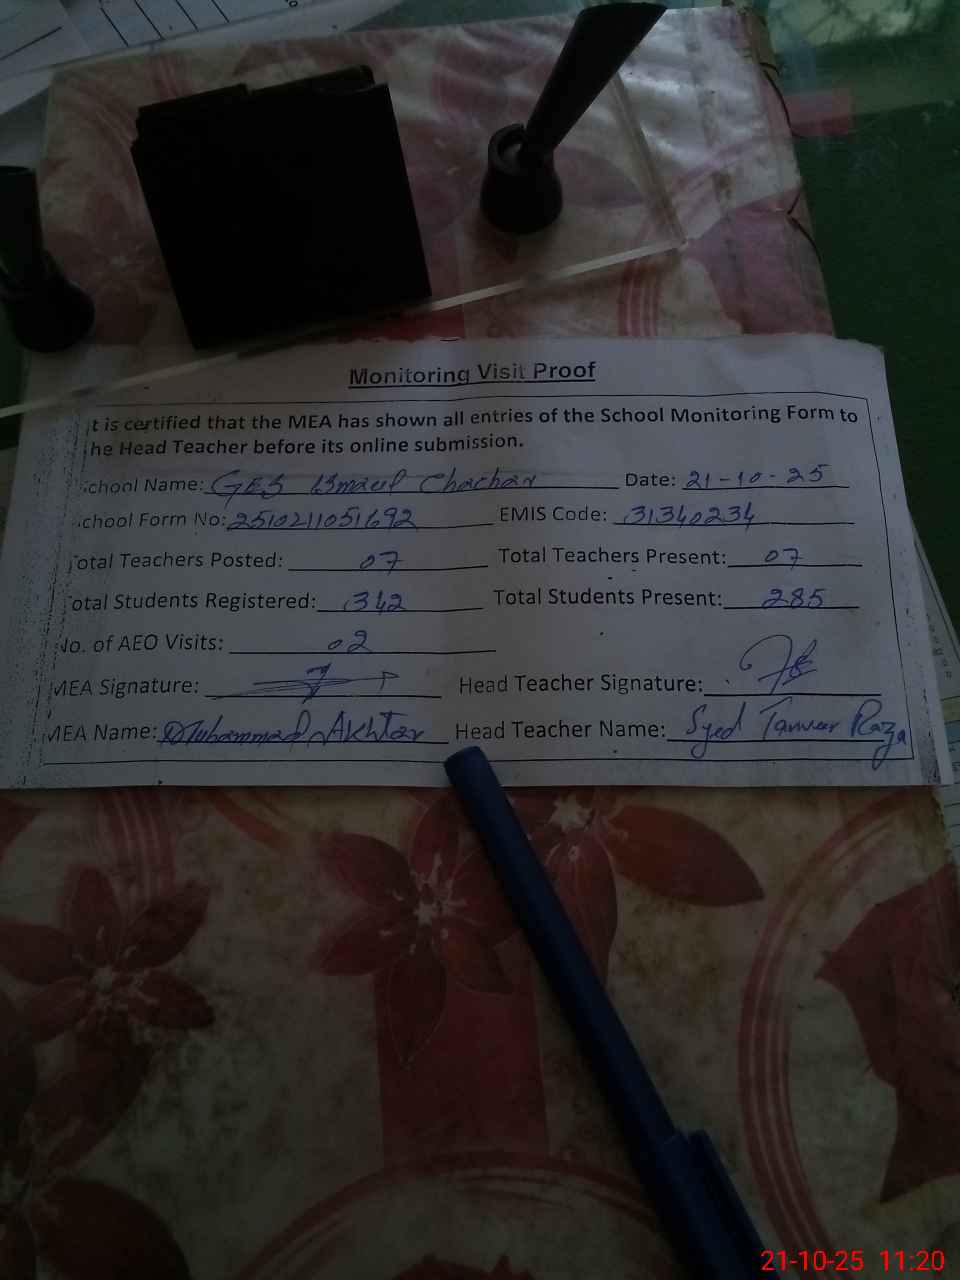 Monitoring Visit Proof
t is certified that the MEA has shown all entries of the School Monitoring Form to
he Head Teacher before its online submission.
School Name: GES Chachar Date: 21-10-25
School Form No: 2510211051692 EMIS Code: 31340234
Total Teachers Posted: 07 Total Teachers Present: 07
Total Students Registered: 342 Total Students Present: 285
No. of AEO Visits: 02
MEA Signature: Head Teacher Signature:
MEA Name: Muhammad Akhtar Head Teacher Name: Syed Tanveer Raza
21-10-25 11:20